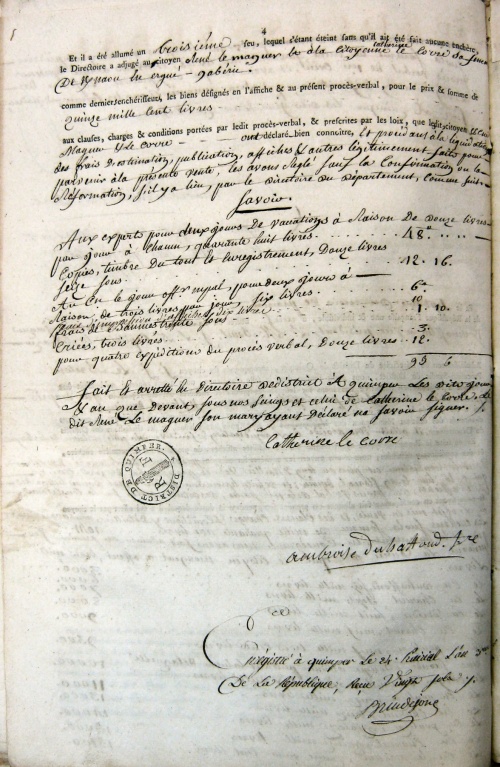 4
Et il a été allumé un troisième feu, lequel s'étant éteint sans qu'il ait été fait aucune enchère,
le Directoire a adjugé au citoyen René le maguer & à la citoyenne catherine le Corre sa femme
en ergué-gabéric.
comme derniers enchérisseurs, les biens désignés en l'affiche & au présent procès-verbal, pour le prix & somme de
quinze mille cent livres
aux clauses, charges & conditions portées par ledit procès-verbal, & prescrites par les loix, que ledit citoyen Le
Maguer & Le Corre ont déclaré bien connoître, Et procédant à la liquidation
des frais D'estimation, publication, affiches & autres légitimement faits pour
parvenir à la présente vente, les avons Réglé sauf la Confirmation ou la
Réformation, s'il y a lieu, par le Directoire du Département, comme suit
Savoir.
Aux experts pour deux jours De vacations à Raison De douze livres
par jour à Chacun, quarante huit livres. 48 "
Copies, timbre Du tout et Enregistrement, Douze livres
seize sous. 12. 16.
pour deux jours à
Raison, de trois livres par jour, six livres. 6
dix livres 10
trente sous 1. 10.
Criées, trois livres. 3.
pour quatre expéditions du procès verbal, Douze livres. 12.
93 6
Fait et arrêté au Directoire De district à quimper Les dits jour
& an que Devant, sous nos seings et celui de Catherine le Corre, Le
dit René Le maguer son mary ayant Déclaré ne savoir signer.
Catherine le Corre
DISTRICT DE QUIMPER.
R F
Enregistré à quimper le 24. l'an 3me
De La République, Reçu Vingt sols